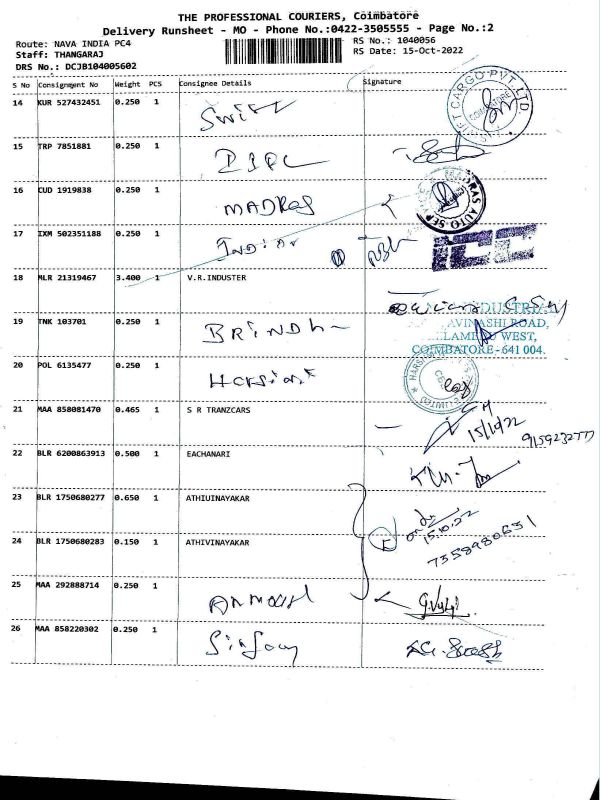 THE PROFESSIONAL COURIERS, Coimbatore
Delivery Runsheet - MO - Phone No.:0422-3505555 - Page No.:2
Route: NAVA INDIA PC4 RS No.: 1040056
Staff: THANGARAJ RS Date: 15-Oct-2022
DRS No.: DCJB104005602
S No Consignment No Weight PCS Consignee Details Signature
14 KUR 527432451 0.250 1 Swift
15 TRP 7851881 0.250 1
16 CUD 1919838 0.250 1 MADRAS
17 IXM 502351188 0.250 1 Indian
ICC
18 MLR 21319467 3.400 1 V.R.INDUSTER
19 TNK 103701 0.250 1 BRINDha
AVINASHI ROAD,
WEST,
COIMBATORE - 641 004.
20 POL 6135477 0.250 1
21 MAA 858081470 0.465 1 S R TRANZCARS
15/10/22
9159232777
22 BLR 6200863913 0.500 1 EACHANARI
23 BLR 1750680277 0.650 1 ATHIUINAYAKAR
15.10.22
24 BLR 1750680283 0.150 1 ATHIVINAYAKAR
7358980631
25 MAA 292888714 0.250 1
26 MAA 858220302 0.250 1